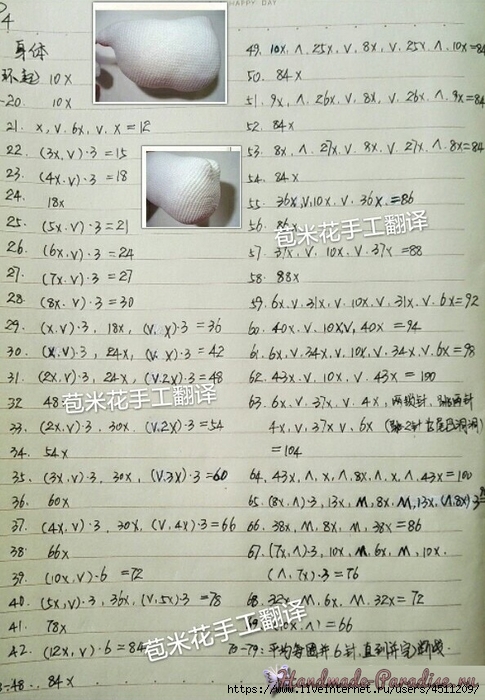 HAPPY DAY
4
身体
环起 10X
-20 10X
21. X, V. 6X, V. X = 12
22. (3X, V)·3 = 15
23. (4X. V)·3 = 18
24. 18X
25. (5X. V)·3 = 21
26. (6X, V)·3 = 24
27. (7X. V)·3 = 27
28. (8X. V)·3 = 30
29. (X. V)·3, 18X, (V. X)·3 = 36
30. (X. V)·3, 24X, (V. X)·3 = 42
31. (2X. V)·3, 24X, (V. 2X)·3 = 48
32 48
33. (2X. V)·3, 30X. (V. 2X)·3 = 54
34. 54X
35. (3X, V)·3, 30X, (V. 3X)·3 = 60
36. 60X
37. (4X. V)·3, 30X, (V, 4X)·3 = 66
38. 66X
39. (10X, V)·6 = 72
40. (5X, V)·3, 36X, (V, 5X)·3 = 78
41. 78X
42. (12X, V)·6 = 84
-48. 84X
49. 10X, Λ, 25X, V, 8X, V. 25X, Λ, 10X = 84
50. 84X
51. 9X, Λ, 26X, V, 8X, V. 26X, Λ, 9X = 84
52. 84X
53. 8X, Λ. 27X, V. 8X, V. 27X, Λ, 8X = 84
54. 84X
55. 36X, V, 10X, V. 36X = 86
56. 86X
57. 37X, V. 10X, V. 37X = 88
58. 88X
59. 6X, V. 31X, V. 10X, V. 31X, V. 6X = 92
60. 40X. V. 10X, V, 40X = 94
61. 6X, V. 34X, V. 10X, V. 34X, V. 6X = 98
62. 43X. V. 10X, V. 43X = 100
63. 6X, V. 37X, V. 4X, 两锁针, 跳两针
4X, V, 37X, V, 6X
= 104
64. 43X, Λ, X, Λ, 8X, Λ, X, Λ, 43X = 100
65. (8X, Λ)·3, 13X, M, 8X, M, 13X, (Λ, 8X)·3
66. 38X, M, 8X, M, 38X = 86
67. (7X, Λ)·3, 10X, M, 6X, M, 10X,
(Λ, 7X)·3 = 76
68. 32X, M, 6X, M, 32X = 72
X, Λ) = 66
70-79: 平均每圈并6针, 直到并完断线.
苞米花手工翻译
苞米花手工翻译
苞米花手工翻译
苞米花手工翻译
Handmade-Paradise.ru
https://www.liveinternet.ru/users/4511209/